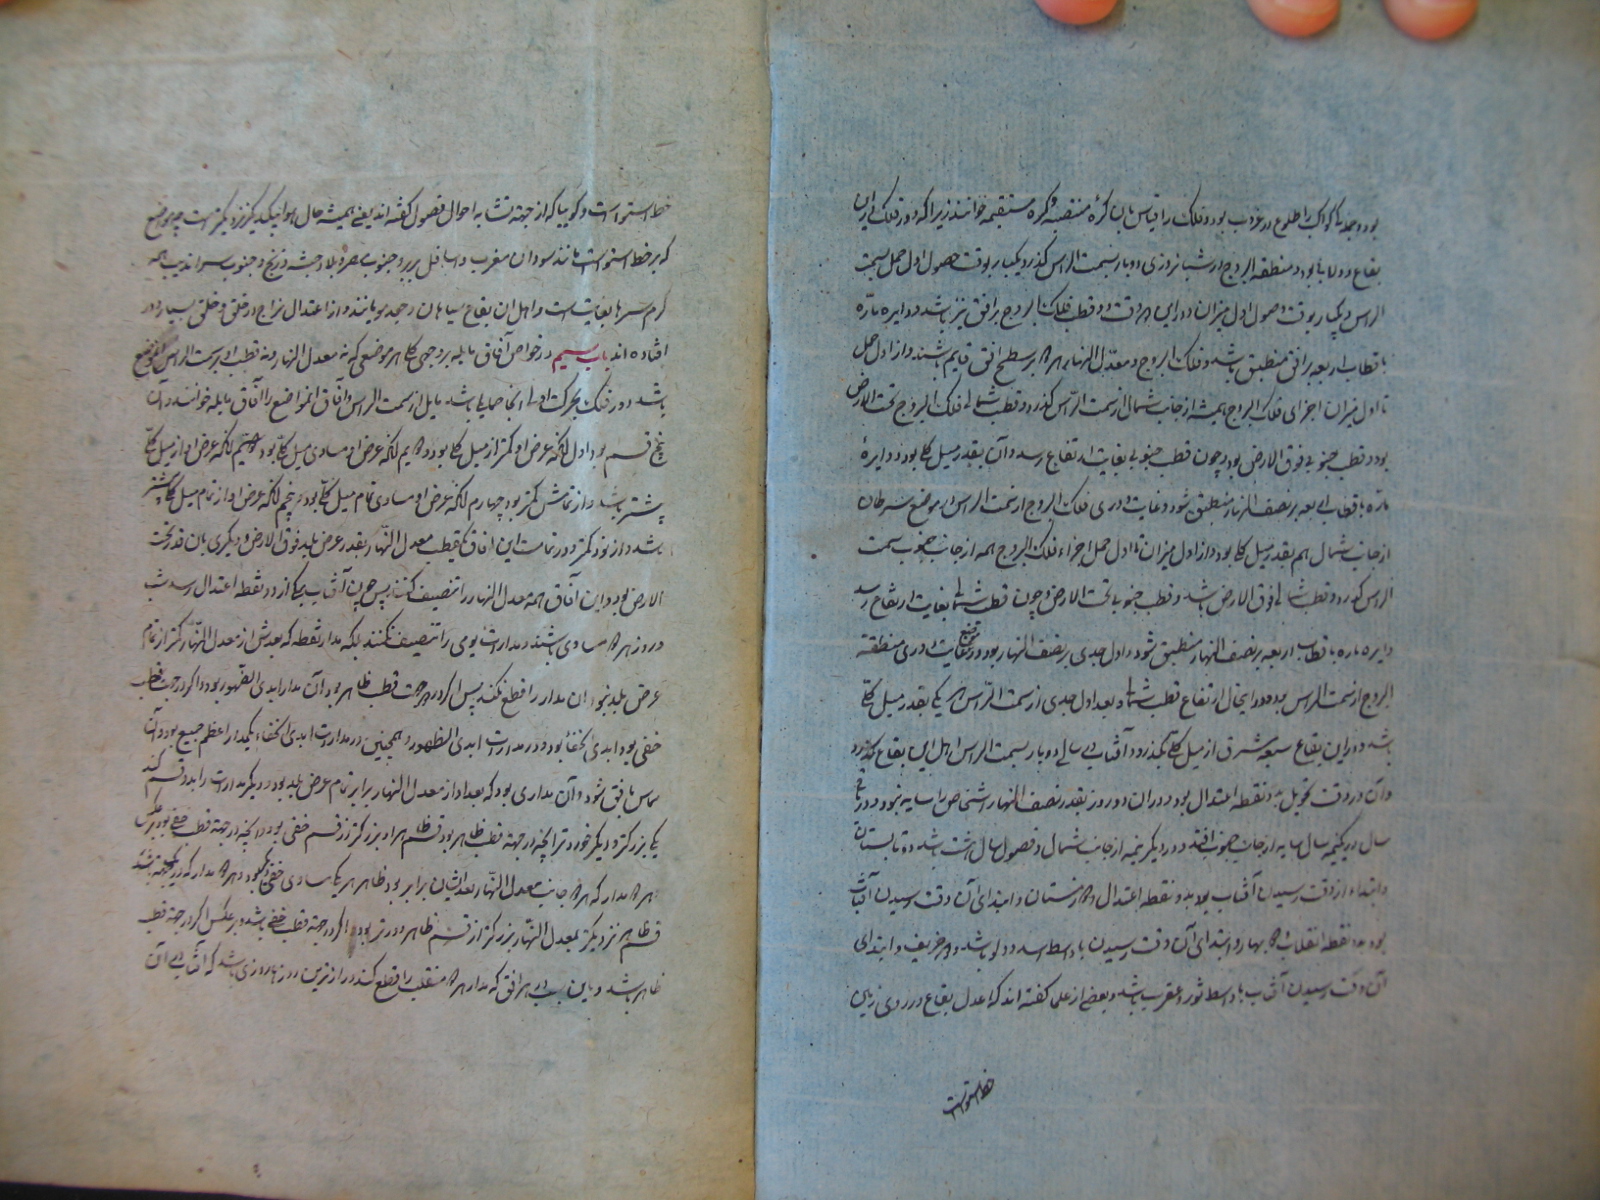 بود و جمله کواکب را طلوع و غروب بود و فلک را قیاس بان کرهٔ منتصبه و کره مستقیمه خوانند زیرا که دور فلک در این
بقاع دولابی بود و منطقه البروج در شبانروزی دو بار بسمت الراس گذرد یکبار بوقت حصول اول حمل بسمت
الراس و یکبار بوقت وصول اول میزان و در این هر دو وقت دو قطب فلک البروج بر افق نیز باشد و دایره مارّه
باقطاب اربعه بر افق منطبق باشد و فلک البروج و معدّل النهار هر دو بر سطح افق قایم باشند و از اول حمل
تا اول میزان اجزای فلک البروج همیشه از جانب شمال از سمت الرّاس گذرد و قطب شمالی فلک البروج تحت الارض
بود و قطب جنوبی فوق الارض بود و چون قطب جنوبی بغایت ارتفاع رسد و آن بقدر میل کلی بود و دایرهٔ
مارّه باقطاب اربعه بر نصف النهار منطبق شود و غایت دوری فلک البروج از سمت الراس در موضع سرطان
از جانب شمال هم بقدر میل کلی بود و از اول میزان تا اول حمل اجزاء فلک البروج همه از جانب جنوب سمت
الراس گذرد و قطب شمالی فوق الارض باشد و قطب جنوبی تحت الارض و چون قطب شمالی بغایت ارتفاع رسد
دایره ماره باقطاب اربعه بر نصف النهار منطبق شود و اول جدی بر نصف النهار بود و در غایت دوری منطقة
البروج از سمت الراس بود و در اینحال ارتفاع قطب شمالی و بعد اول جدی از سمت الرّاس هر یکی بقدر میل کلّی
باشد و در این بقاع سعه مشرق از میل کلّی نگذرد و آفتاب در سالی دو بار بسمت الراس اهل این بقاع گذرد
و آن در وقت تحویل بدو نقطه اعتدال بود و در ان دو روز بقدر نصف النهار اشخاص را سایه نبود و در باقی
سال در یکنیمه سال سایه از جانب جنوب افتد و در دیگر نیمه از جانب شمال و فصول سال هشت باشد دو تابستان
و ابتداء از وقت رسیدن آفتاب بود بدو نقطه اعتدال و دو زمستان و ابتدای آن وقت رسیدن آفتاب
بود بدو نقطه انقلاب و دو بهار و ابتدای آن وقت رسیدن باوسط اسد و دلو باشد و دو خریف و ابتدای
آن وقت رسیدن آفتاب باوسط ثور و عقرب باشد و بعضی از علما گفته اند که اعدل بقاع در روی زمین
خط استواست
خط استواست و گوییا که از جهة تشابه احوال فصول گفته اند یعنی همیشه حال هوا بیکدیگر نزدیکتر است چه مواضع
که بر خط استواست مانند سودان مغرب و اسافل بربر و جنوب مصر و بلاد حبشه و زنج و جنوب سراندیب همه
گرم سیرها بغایت است و اهل ان بقاع سیاهان و جعد مویانند و از اعتدال مزاج در خلق و خلق بسیار دور
افتاده اند باب سیم در خواص آفاق مایله بر وجهی کلی هر موضعی که نه معدل النهار و نه قطب او بر سمت الراس آن موضع
باشد دور فلک بحرکت اولی انجا حمایلی باشد مایل از سمت الراس و آفاق انمواضع را آفاق مایله خوانند و آن
پنج قسم بود اول آنکه عرض او کمتر از میل کلی بود دویم آنکه عرض او مساوی میل کلّی بود سیم آنکه عرض او از میل کلّی
بیشتر باشد و از تمامش کمتر بود چهارم آنکه عرض او مساوی تمام میل کلّی بود پنجم آنکه عرض او از تمام میل کلی بیشتر
باشد و از نود کمتر و در تمامت این افاق یکقطب معدل النهّار بقدر عرض بلد فوق الارض و دیگری بان قدر تحت
الارض بود و این آفاق همه معدل النهار را تنصیف کنند پس چون آفتاب بیکی از دو نقطه اعتدال رسد شب
و روز هر دو مساوی باشند و مدارات یومی را تنصیف نکنند بلکه مدار نقطه که بعدش از معدل النهّار کمتر از تمام
عرض بلد نبود ان مدار را قطع نکند پس اگر در جهت قطب ظاهر بود آن مدار ابدی الظهور بود و اگر در جهت قطب
خفی بود ابدی الخفا بود و در مدارات ابدی الظهور و همچنین در مدارات ابدی الخفاء یکمدار اعظم جمیع بود و آن
مماس بافق شود و آن مداری بود که بعد او از معدل النهار برابر تمام عرض بلد بود و دیگر مدارات را بدو قسم کند
یکی بزرگتر و دیگر خوردتر انچه در جهة قطب ظاهر بود قسم ظاهر او بزرگتر از قسم خفی بود و انچه در جهة قطب خفی بود بر عکس
و هر دو مدار که هر دو جانب معدل النهّار بعد ایشان برابر بود ظاهر هر یک مساوی خفی دیگر بود و هر دو مدار که در یکجهة باشد
قسم ظاهر نزدیکتر بمعدل النهار بزرگتر از قسم ظاهر دورتر بود اگر در جهة قطب خفی باشد و بر عکس اگر در جهة قطب
ظاهر باشد و باین سبب در هر افق که مدار هر دو منقلب را قطع کند درازترین روزها روزی باشد که آفتاب در آن